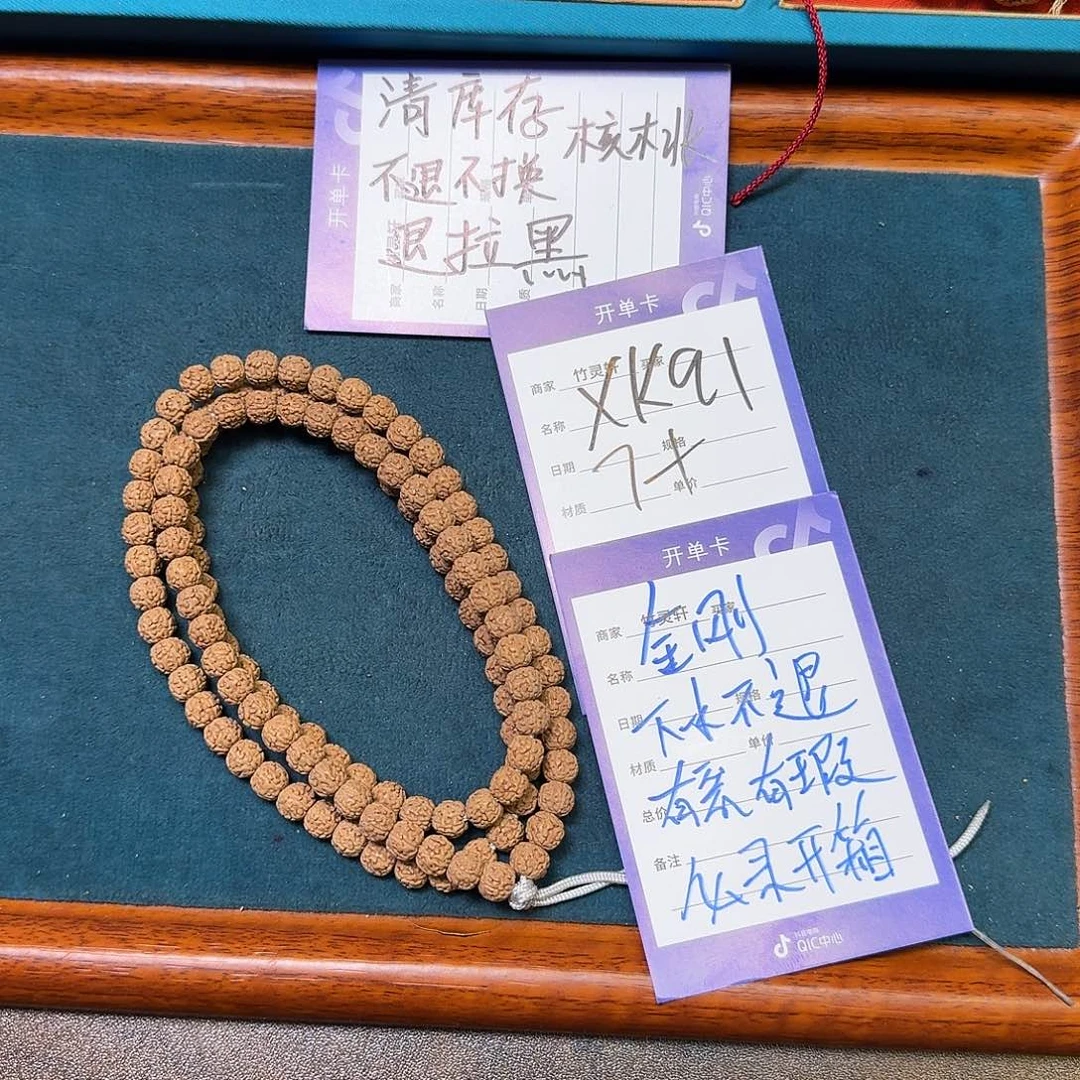 清库存
核木水
不退不换
退拉黑
开单卡
商家
名称
日期
QIC中心
开单卡
商家 竹灵轩 买家
XK91
名称
日期 规格
7十
材质 单价
开单卡
商家 竹灵轩 买家
金刚
名称
日期 规格
下水不退
材质 单价
总价
有裂有瑕
备注
必录开箱
QIC中心